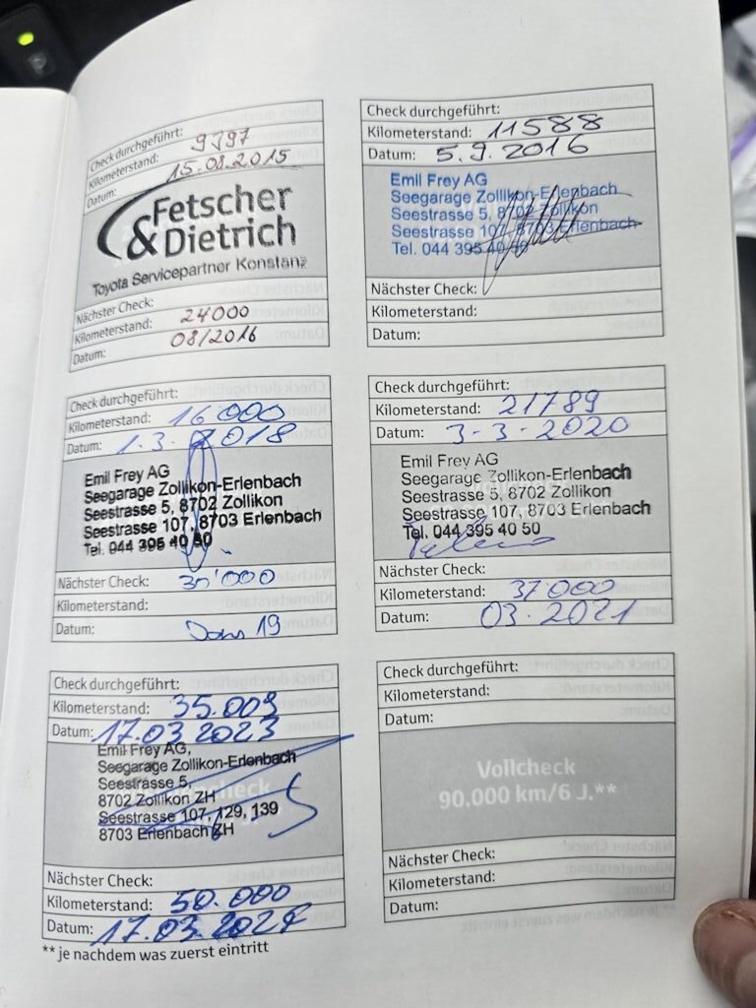 Check durchgeführt:
Kilometerstand: 9397
Datum: 15.08.2015
Fetscher
& Dietrich
Toyota Servicepartner Konstanz
Nächster Check:
Kilometerstand: 24000
Datum: 08/2016
Check durchgeführt:
Kilometerstand: 11588
Datum: 5.9.2016
Emil Frey AG
Seegarage Zollikon-Erlenbach
Seestrasse 5, 8702 Zollikon
Seestrasse 107, 8703 Erlenbach
Tel. 044 395 40 50
Nächster Check:
Kilometerstand:
Datum:
Check durchgeführt:
Kilometerstand: 16'000
Datum: 1.3.2018
Emil Frey AG
Seegarage Zollikon-Erlenbach
Seestrasse 5, 8702 Zollikon
Seestrasse 107, 8703 Erlenbach
Tel. 044 395 40 50
Nächster Check: 30'000
Kilometerstand:
Datum: 19
Check durchgeführt:
Kilometerstand: 21789
Datum: 3-3-2020
Emil Frey AG
Seegarage Zollikon-Erlenbach
Seestrasse 5, 8702 Zollikon
Seestrasse 107, 8703 Erlenbach
Tel. 044 395 40 50
Nächster Check:
Kilometerstand: 37'000
Datum: 03.2021
Check durchgeführt:
Kilometerstand: 35.009
Datum: 17.03.2023
Emil Frey AG,
Seegarage Zollikon-Erlenbach
Seestrasse 5,
8702 Zollikon ZH
Seestrasse 107, 129, 139
8703 Erlenbach ZH
Nächster Check:
Kilometerstand: 50.000
Datum: 17.03.2024
Check durchgeführt:
Kilometerstand:
Datum:
Vollcheck
90.000 km/6 J.**
Nächster Check:
Kilometerstand:
Datum:
**je nachdem was zuerst eintritt